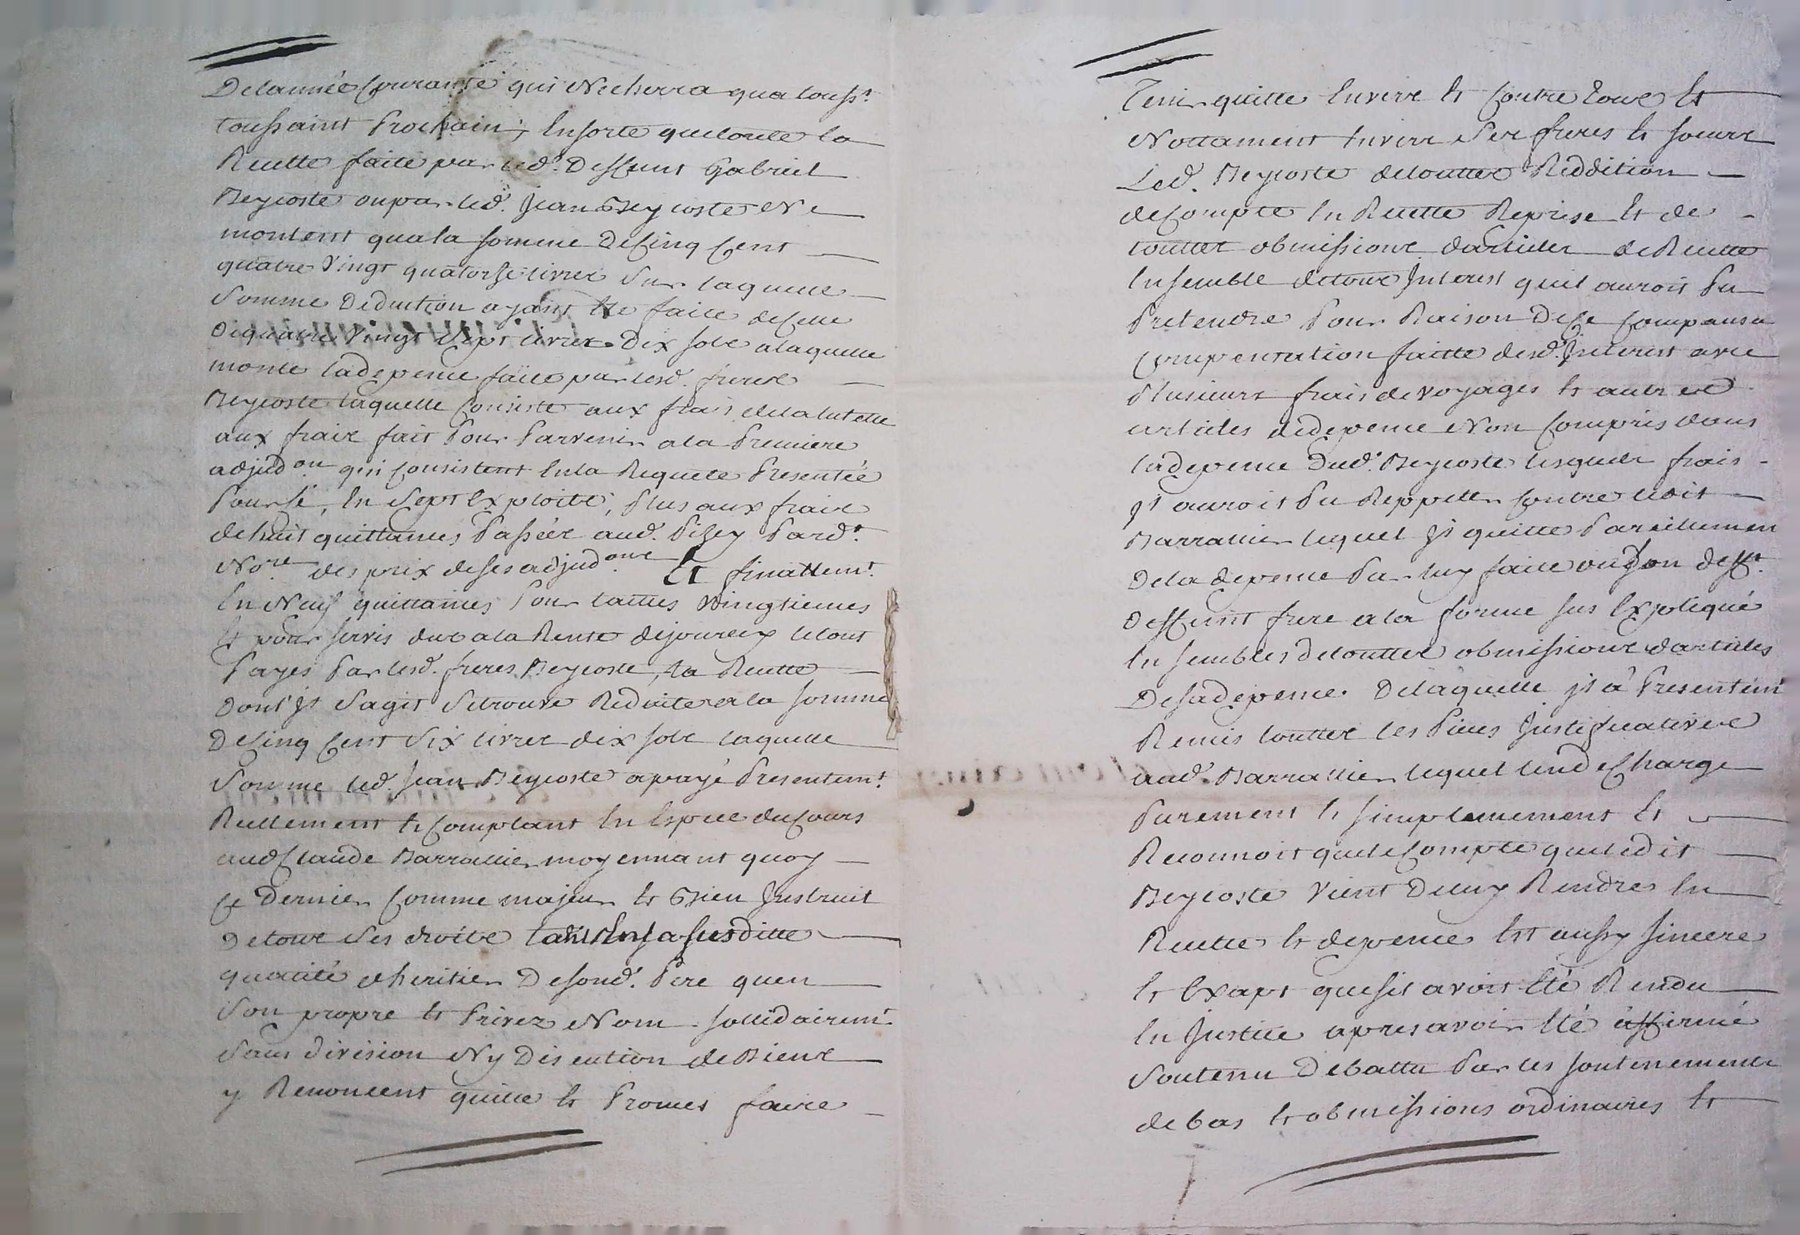 De lannée Courante qui Necherra qua louss.t
toussaint Prochain; En sorte que toute la
Recette faite par led. Deffunt Gabriel
Beycoste ou par led. Jean Beycoste Ne
montent qua la somme De Cinq Cent
quatre Vingt quatorse livres Sur laquelle
Somme Deduction ayant ete faite de Celle
De quatre Vingt Sept livres Dix sols a laquelle
monte la depence faite par lesd. freres
Beycoste laquelle Consiste aux frais de la tutelle
aux frais fait Pour Parvenir a la Premiere
adjud.on qui Consistent En la Requete Presentée
Pour Ce, En Sept Exploits; Plus aux frais
de huit quittances Passées aud. Pisey Pard.t
No.re des prix de ses adjud.ons Et finallem.t
En Neuf quittances Pour tailles Vingtiemes
Et pour servis dus a la Rente de joursey le tout
Payes Par lesd. freres Beycoste, la Recette
Dont Jl Sagit Se trouve Reduite a la somme
De Cinq Cent Six livres dix sols laquelle
Somme led. Jean Beycoste a payé Presentem.t
Reellement et Comptant En Espece du Cours
aud. Claude Barrallier moyennant quoy
Ce Dernier Comme majeur et Bien Jnstruit
De tous Ses droits tant En sa susditte
qualité dheritier De sond. Pere quen
Son propre et Privez Nom Sollidairem.t
Sans division Ny Discution de Biens
y Renoncent quitte et Promet faire
Tenir quitte Envers et Contre tous Et
Nottament Envers Ses freres et soeurs
Led. Beycoste de touttes Reddition
de Compte En Recette Reprise et de
touttes obmissions darticles de Recette
Ensemble de tous Jnterest quil auroit Pu
Pretendre Pour Raison De Ce Compansa
Compensation faitte desd. Jnterest avec
Plusieurs frais de voyages et autres
articles de depence Non Compris dans
la depence Dud. Beycoste lesquels frais
Jl auroit Pu Reppetter Contre ledit
Barrallier lequel Jl quitte Pareillement
De la depence Par luy faite ou Son deff.t
Deffunt frere a la forme sus Expliqué
Ensembles de touttes obmissions darticles
De sa depence De laquelle jl a Presentem.t
Remis touttes les Pieces Justificatives
aud. Barrallier lequel len de Charge
Purement et simplemement Et
Reconnoit que le Compte que ledit
Beycoste Vient De luy Rendre En
Recette et depence Est aussy sincere
et Exapt que sil avoit Eté Rendu
En Justice apres avoir Eté affirmé
Soutenu Debattu Par les soutenements
debas et obmissions ordinaires Et